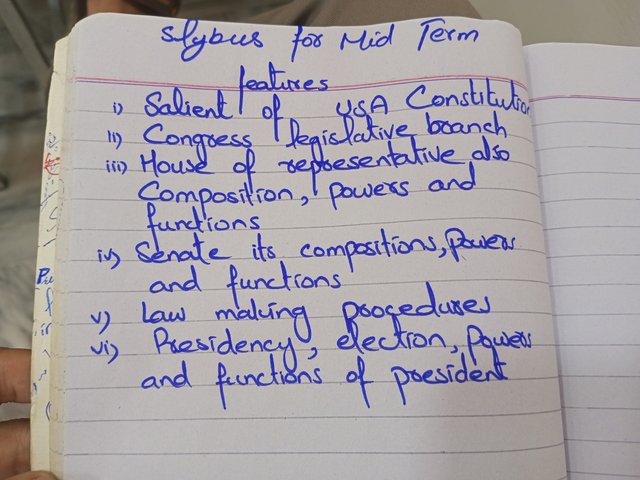 Slybus for Mid Term
features
i) Salient of USA Constitution
ii) Congress legislative branch
iii) House of representative also
Composition, powers and
functions
iv) Senate its compositions, Powers
and functions
v) Law making procedures
vi) Presidency, election, Powers
and functions of president